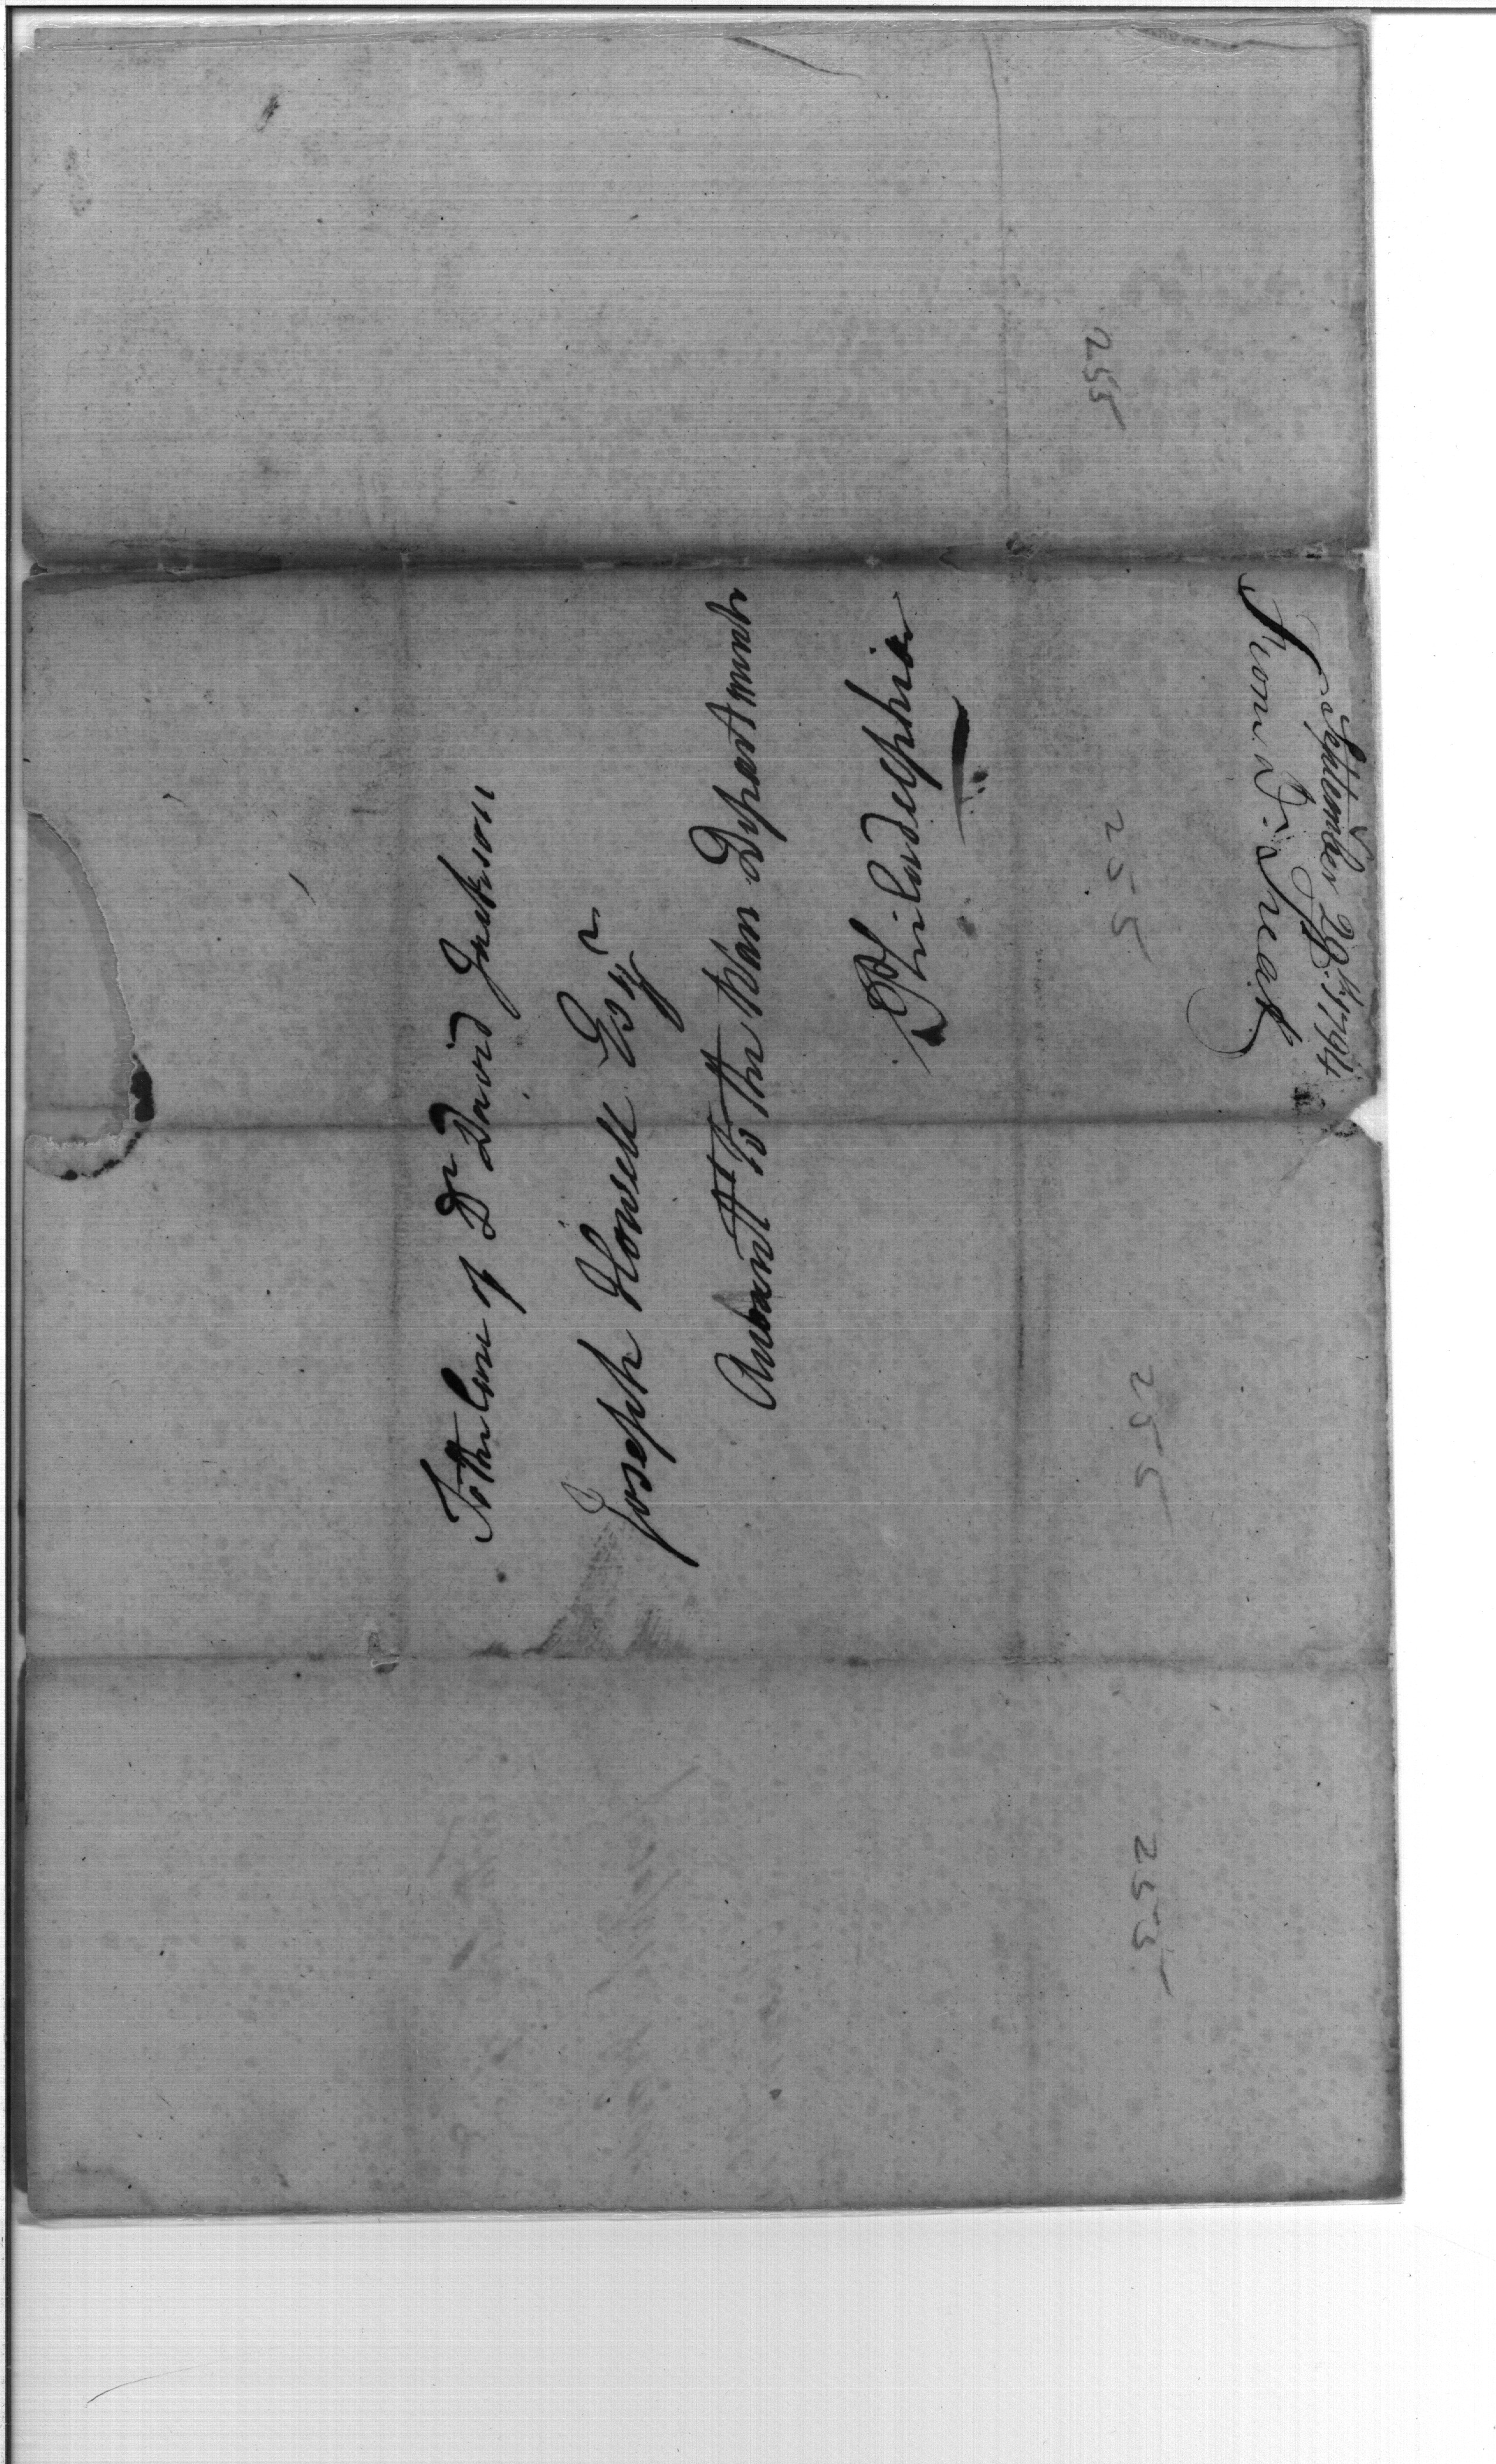 To the Care of Dr David Jackson
Joseph Howell Esqr
Accountt To the War Department
Philadelphia
From D. Treat
September 29th 1794
255
255
255
255